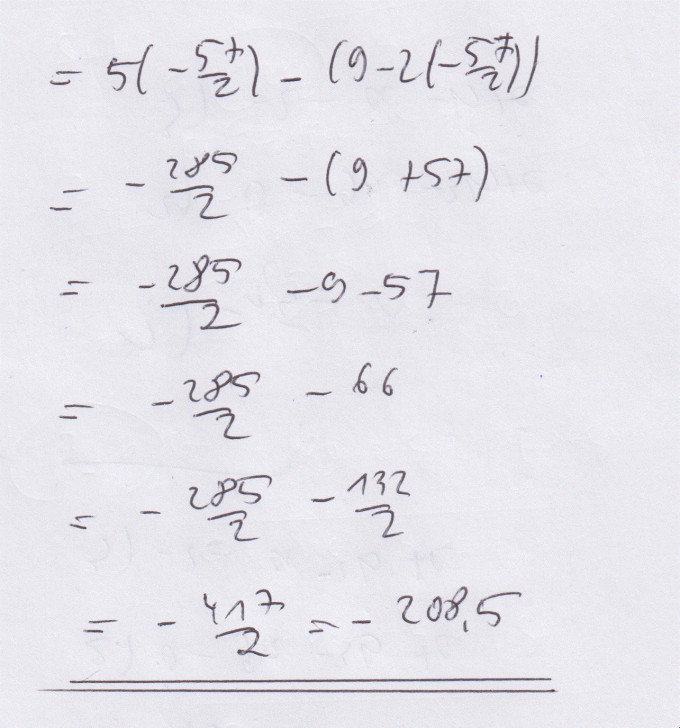 = 5(-57/2) - (9-2(-57/2))
= -285/2 - (9 +57)
= -285/2 -9 -57
= -285/2 - 66
= -285/2 - 132/2
= -417/2 = -208,5